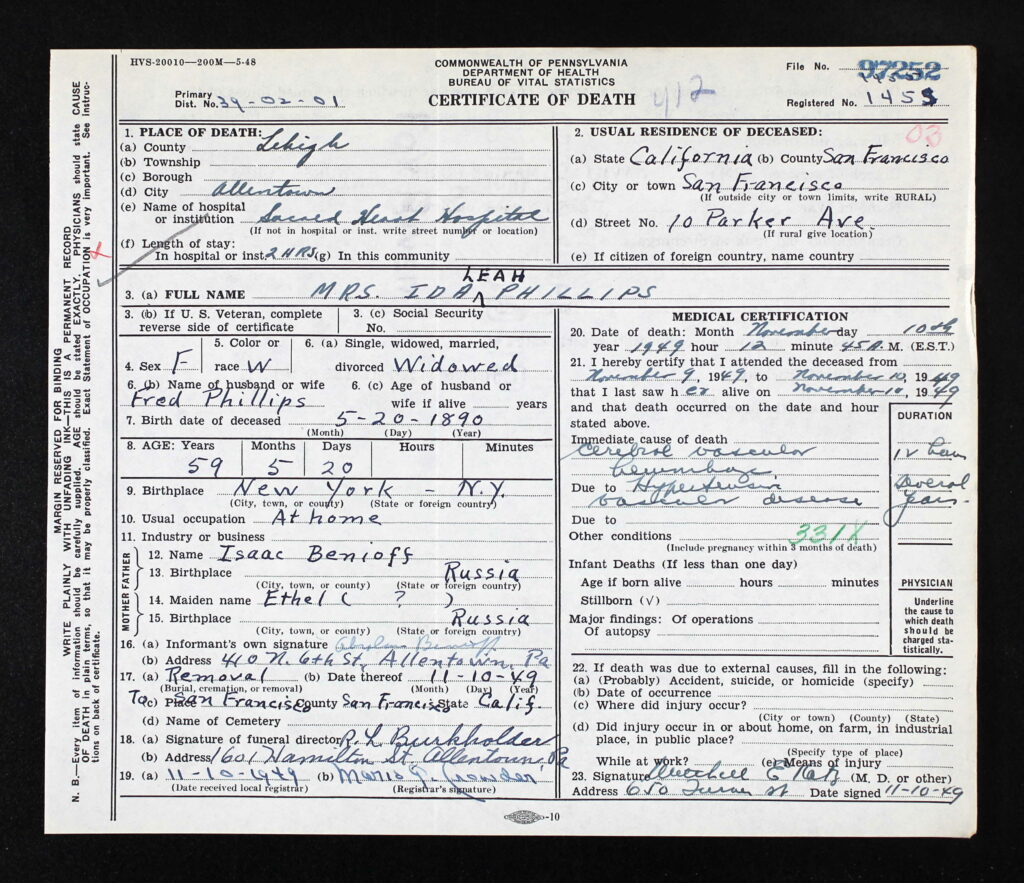 HVS-20010—200M—5-48
COMMONWEALTH OF PENNSYLVANIA
DEPARTMENT OF HEALTH
BUREAU OF VITAL STATISTICS
CERTIFICATE OF DEATH
File No. 97252
Primary Dist. No. 39-02-01
412
Registered No. 1455
03
1. PLACE OF DEATH:
(a) County Lehigh
(b) Township
(c) Borough
(d) City Allentown
(e) Name of hospital
or institution Sacred Heart Hospital
(If not in hospital or inst. write street number or location)
(f) Length of stay:
In hospital or inst. 2 HRS (g) In this community
2. USUAL RESIDENCE OF DECEASED:
(a) State California (b) County San Francisco
(c) City or town San Francisco
(If outside city or town limits, write RURAL)
(d) Street No. 10 Parker Ave
(If rural give location)
(e) If citizen of foreign country, name country
3. (a) FULL NAME MRS. IDA LEAH PHILLIPS
3. (b) If U. S. Veteran, complete
reverse side of certificate
3. (c) Social Security
No.
4. Sex F
5. Color or
race W
6. (a) Single, widowed, married,
divorced Widowed
6. (b) Name of husband or wife
Fred Phillips
6. (c) Age of husband or
wife if alive years
7. Birth date of deceased 5-20-1890
(Month) (Day) (Year)
8. AGE: Years Months Days Hours Minutes
59 5 20
9. Birthplace New York - N.Y.
(City, town, or county) (State or foreign country)
10. Usual occupation At home
11. Industry or business
FATHER
12. Name Isaac Benioff
13. Birthplace Russia
(City, town, or county) (State or foreign country)
MOTHER
14. Maiden name Ethel ( ? )
15. Birthplace Russia
(City, town, or county) (State or foreign country)
16. (a) Informant's own signature Benioff
(b) Address 410 N. 6th St, Allentown, Pa
17. (a) Removal (b) Date thereof 11-10-49
(Burial, cremation, or removal) (Month) (Day) (Year)
To (c) Place San Francisco County San Francisco State Calif.
(d) Name of Cemetery
18. (a) Signature of funeral director R. L. Burkholder
(b) Address 1601 Hamilton St. Allentown, Pa
19. (a) 11-10-1949 (b)
(Date received local registrar) (Registrar's signature)
MEDICAL CERTIFICATION
20. Date of death: Month November day 10th
year 1949 hour 12 minute 45 A. M. (E.S.T.)
21. I hereby certify that I attended the deceased from
November 9, 1949, to November 10, 1949
that I last saw h er alive on November 10, 1949
and that death occurred on the date and hour
stated above.
DURATION
Immediate cause of death
Cerebral vascular
hemorrhage
12 hours
Due to Hypertensive
vascular disease
Several years
Due to
Other conditions 331X
(Include pregnancy within 3 months of death)
Infant Deaths (If less than one day)
Age if born alive hours minutes
Stillborn (√)
Major findings: Of operations
Of autopsy
PHYSICIAN
Underline
the cause to
which death
should be
charged sta-
tistically.
22. If death was due to external causes, fill in the following:
(a) (Probably) Accident, suicide, or homicide (specify)
(b) Date of occurrence
(c) Where did injury occur?
(City or town) (County) (State)
(d) Did injury occur in or about home, on farm, in industrial
place, in public place?
(Specify type of place)
While at work? (e) Means of injury
23. Signature Mitchell E Katz (M. D. or other)
Address 650 Turner St Date signed 11-10-49
-10
MARGIN RESERVED FOR BINDING
WRITE PLAINLY WITH UNFADING INK—THIS IS A PERMANENT RECORD
N. B.—Every item of information should be carefully supplied. AGE should be stated EXACTLY. PHYSICIANS should state CAUSE
OF DEATH in plain terms, so that it may be properly classified. Exact Statement of OCCUPATION is very important. See instruc-
tions on back of certificate.